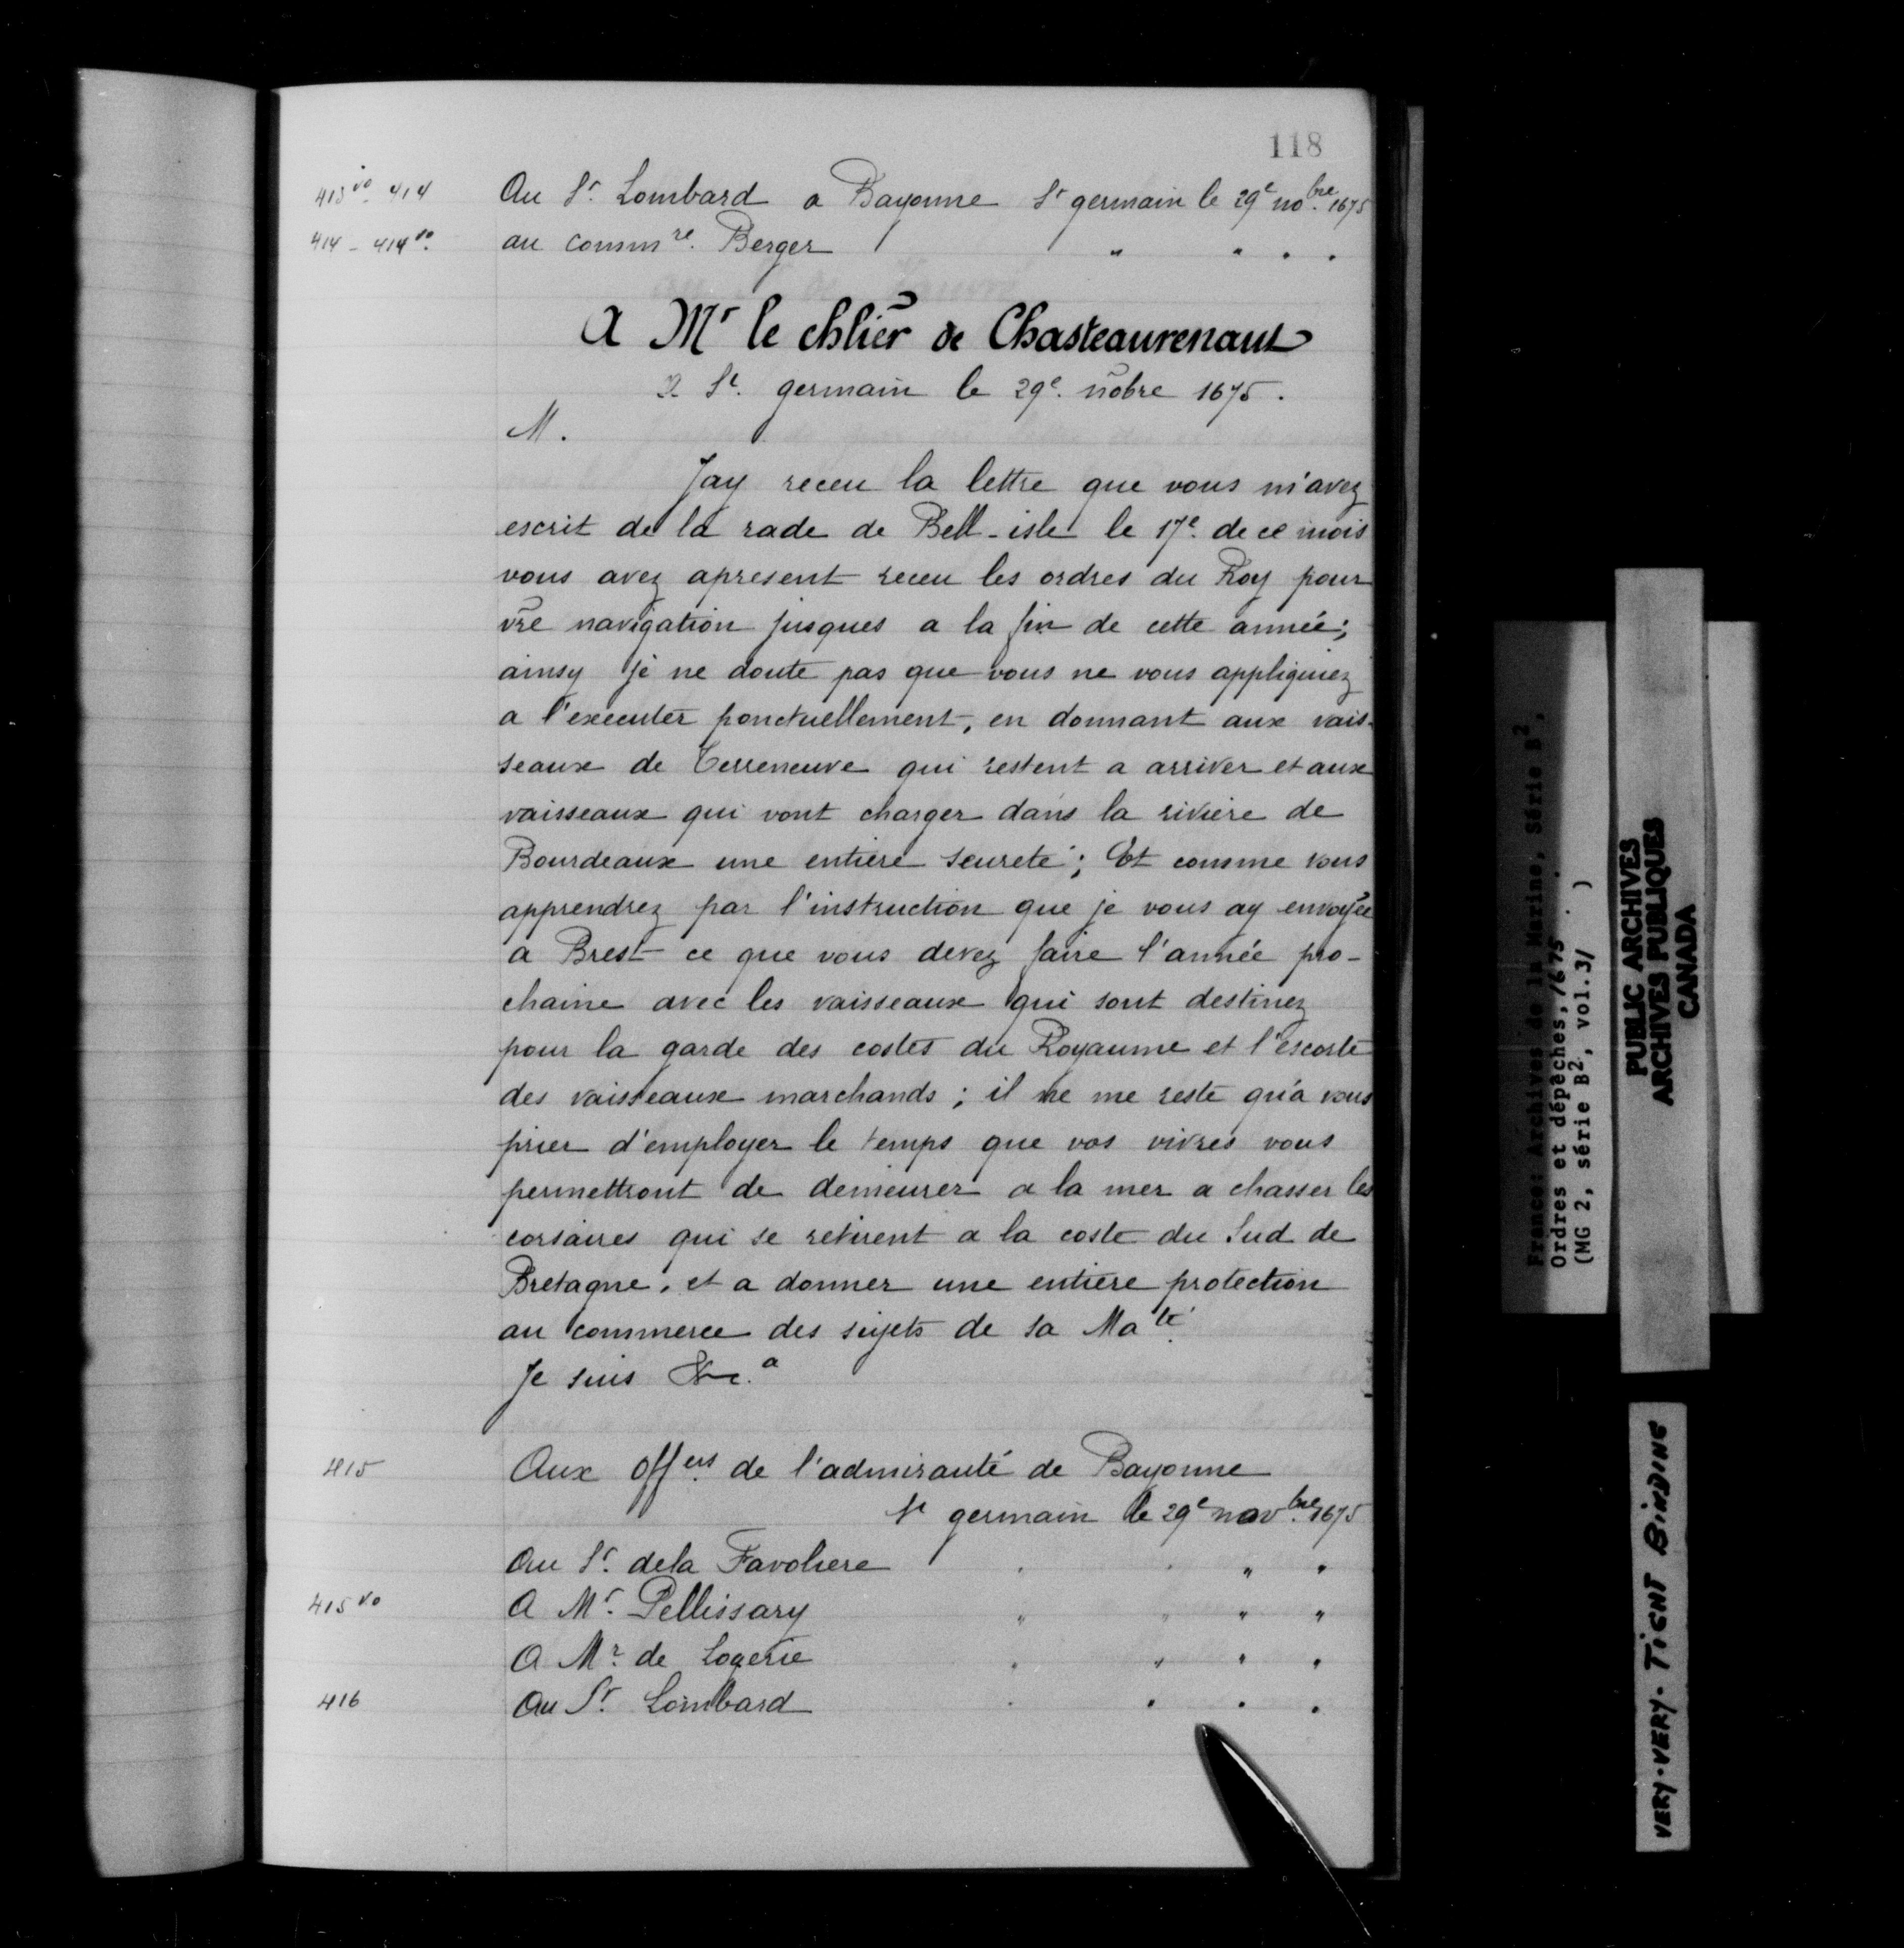 118
413 vo. 414 Au Sr. Lombard a Bayonne St germain le 29e nobre. 1675
414 - 414 vo. au commre. Berger " " " "
A Mr le chlier de Chasteaurenaut
A St. germain le 29e. nobre 1675.
M.
Jay receu la lettre que vous m'avez
escrit de la rade de Bell-isle le 17e. de ce mois
vous avez apresent receu les ordres du Roy pour
vre navigation jusques a la fin de cette année;
ainsy je ne doute pas que vous ne vous appliquiez
a l'executer ponctuellement, en donnant aux vais-
seaux de Terreneuve qui restent a arriver et aux
vaisseaux qui vont charger dans la riviere de
Bourdeaux une entiere seureté; Et comme vous
apprendrez par l'instruction que je vous ay envoyée
a Brest ce que vous devez faire l'année pro-
chaine avec les vaisseaux qui sont destinez
pour la garde des costes du Royaume et l'escorte
des vaisseaux marchands; il ne me reste qu'a vous
prier d'employer le temps que vos vivres vous
permettront de demeurer a la mer a chasser les
corsaires qui se retirent a la coste du Sud de
Bretagne, et a donner une entiere protection
au commerce des sujets de sa Maté.
Je suis &c.a
415 Aux offers. de l'admirauté de Bayonne
St germain le 29e novbre. 1675
Au Sr. dela Favoliere " " " "
415 vo A Mr. Pellissary " " " "
A Mr. de Logerie " " " "
416 Au Sr. Lombard " " " "
France: Archives de la Marine, Série B2,
Ordres et dépêches, 1675 . .
(MG 2, série B2, vol.31 )
PUBLIC ARCHIVES
ARCHIVES PUBLIQUES
CANADA
VERY-VERY-TIGHT BINDING